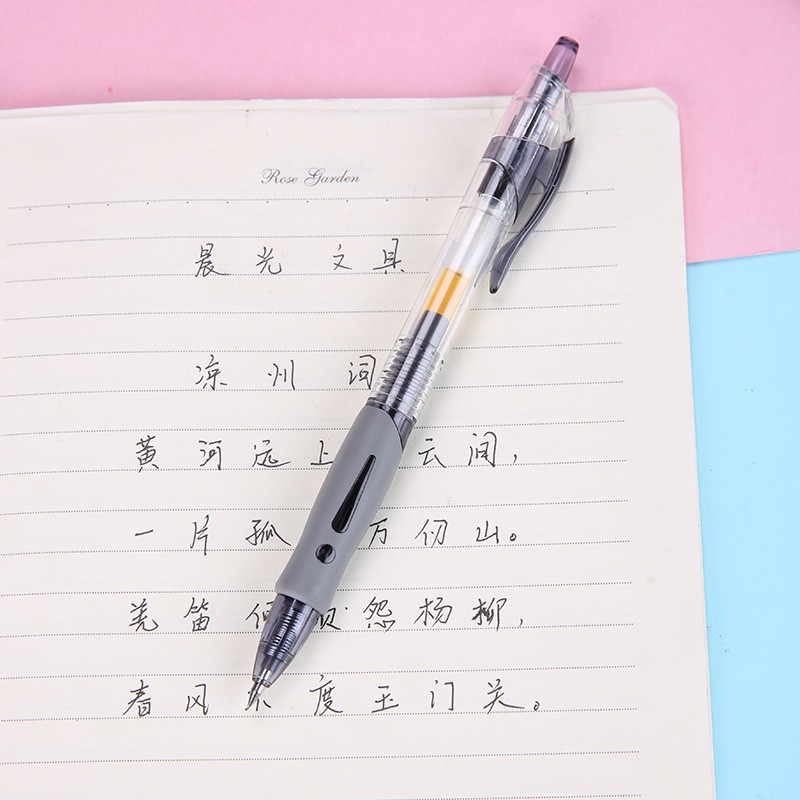 Rose Garden
晨光 文具
凉州词
黄河远上 云间，
一片孤 万仞山。
羌笛何须怨杨柳，
春风不度玉门关。